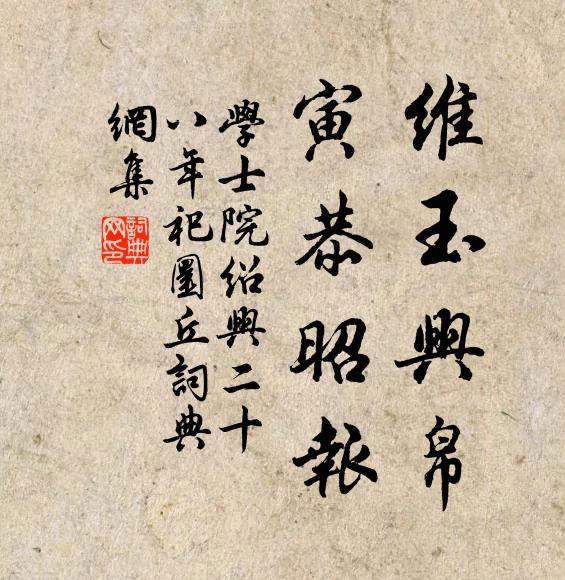 維玉興帛
寅恭昭報
學士院紹興二十
八年祀圜丘詞典
網集
詞典
网印